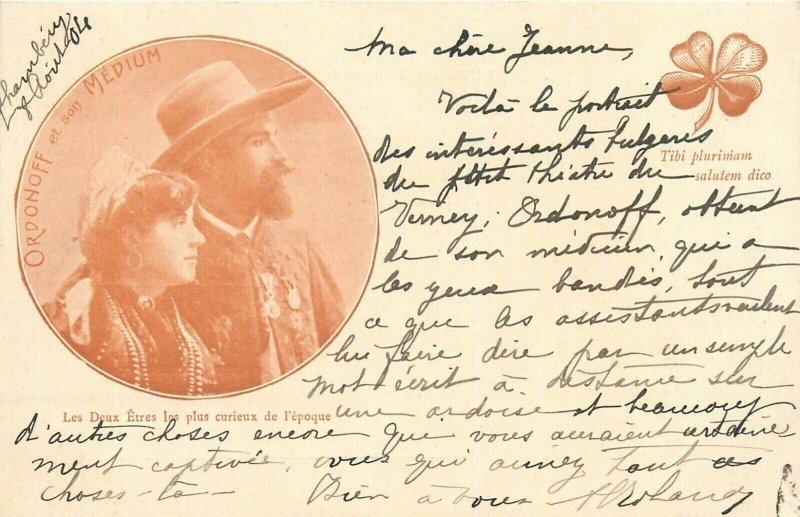 Chambéry
8 Août 04
ORDONOFF et son MÉDIUM
Les Deux Êtres les plus curieux de l'époque
Tibi plurimam
salutem dico
Ma chère Jeanne,
Voilà le portrait
des intéressants
du petit théâtre du
Verney; Ordonoff, obtient
de son médium, qui a
les yeux bandés, tout
ce que les assistants veulent
lui faire dire par un simple
mot écrit à distance sur
une ardoise et beaucoup
d'autres choses encore qui vous auraient
ment captivée, vous qui aimez tant ces
choses-là - Bien à vous HRoland